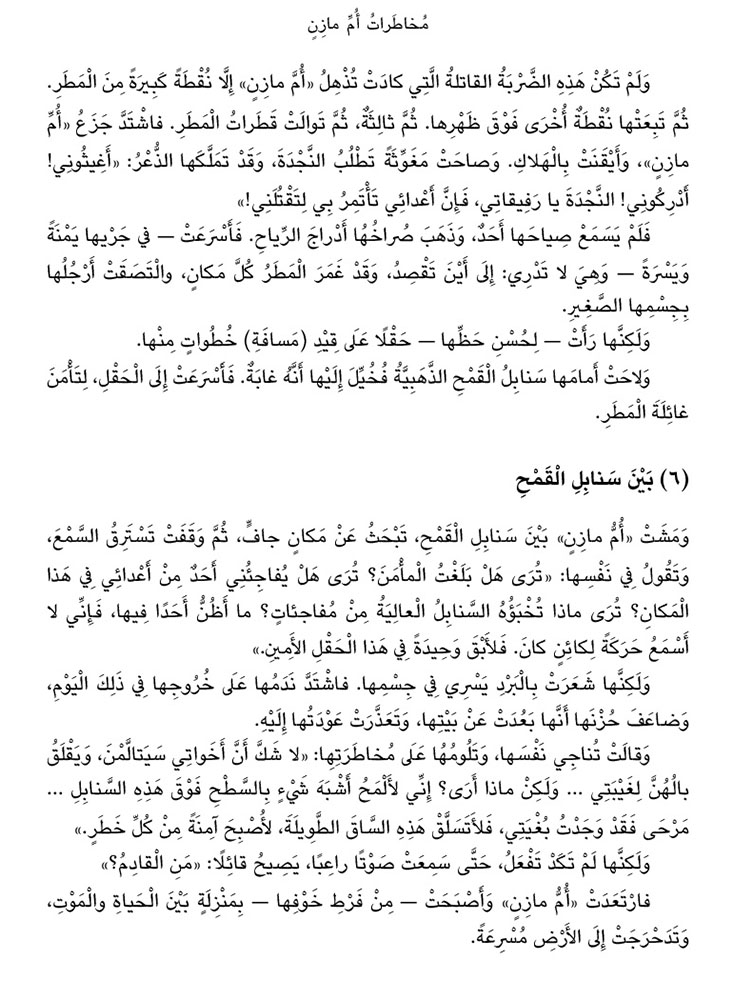 مُخاطَراتُ أُمِّ مازِنٍ
وَلَمْ تَكُنْ هَذِهِ الضَّرْبَةُ القاتلةُ الَّتِي كادَتْ تُذْهِلُ «أُمَّ مازِنٍ» إِلَّا نُقْطَةً كَبِيرَةً مِنَ الْمَطَرِ.
ثُمَّ تَبِعَتْها نُقْطَةٌ أُخْرَى فَوْقَ ظَهْرِها. ثُمَّ ثالِثَةٌ، ثُمَّ تَوالَتْ قَطَراتُ الْمَطَرِ. فاشْتَدَّ جَزَعُ «أُمِّ
مازِنٍ»، وَأَيْقَنَتْ بِالْهَلاكِ. وَصاحَتْ مَغَوِّثَةً تَطْلُبُ النَّجْدَةَ، وَقَدْ تَمَلَّكَها الذُّعْرُ: «أَغِيثُونِي!
أَدْرِكُونِي! النَّجْدَةَ يا رَفِيقاتِي، فَإِنَّ أَعْدائِي تَأْتَمِرُ بِي لِتَقْتُلَنِي!»
فَلَمْ يَسَمَعْ صِياحَها أَحَدٌ، وَذَهَبَ صُراخُها أَدْراجَ الرِّياحِ. فَأَسْرَعَتْ — في جَرْيِها يَمْنَةً
وَيَسْرَةً — وَهِيَ لا تَدْرِي: إِلَى أَيْنَ تَقْصِدُ، وَقَدْ غَمَرَ الْمَطَرُ كُلَّ مَكانٍ، والْتَصَقَتْ أَرْجُلُها
بِجِسْمِها الصَّغِيرِ.
وَلَكِنَّها رَأَتْ — لِحُسْنِ حَظِّها — حَقْلًا عَلَى قِيْدِ (مَسافَةِ) خُطُواتٍ مِنْها.
وَلاحَتْ أَمامَها سَنابِلُ الْقَمْحِ الذَّهَبِيَّةُ فَخُيِّلَ إِلَيْها أَنَّهُ غابَةٌ. فَأَسْرَعَتْ إِلَى الْحَقْلِ، لِتَأْمَنَ
غائِلَةَ الْمَطَرِ.
(٦) بَيْنَ سَنابِلِ الْقَمْحِ
وَمَشَتْ «أُمُّ مازِنٍ» بَيْنَ سَنابِلِ الْقَمْحِ، تَبْحَثُ عَنْ مَكانٍ جافٍّ، ثُمَّ وَقَفَتْ تَسْتَرِقُ السَّمْعَ،
وَتَقُولُ فِي نَفْسِها: «تُرَى هَلْ بَلَغْتُ الْمأْمَنَ؟ تُرَى هَلْ يُفاجِئُنِي أَحَدٌ مِنْ أَعْدائِي فِي هَذا
الْمَكانِ؟ تُرَى ماذا تُخْبَؤُهُ السَّنابِلُ الْعالِيَةُ مِنْ مُفاجئاتٍ؟ ما أَظُنُّ أَحَدًا فِيها، فَإِنِّي لا
أَسْمَعُ حَرَكَةً لِكائِنٍ كانَ. فَلأَبْقَ وَحِيدَةً فِي هَذا الْحَقْلِ الأَمِينِ.»
وَلَكِنَّها شَعَرَتْ بِالْبَرْدِ يَسْرِي فِي جِسْمِها. فاشْتَدَّ نَدَمُها عَلَى خُرُوجِها فِي ذَلِكَ الْيَوْمِ،
وَضاعَفَ حُزْنَها أَنَّها بَعُدَتْ عَنْ بَيْتِها، وَتَعَذَّرَتْ عَوْدَتُها إِلَيْهِ.
وَقالَتْ تُناجِي نَفْسَها، وَتَلُومُها عَلَى مُخاطَرَتِها: «لا شَكَّ أَنَّ أَخَواتِي سَيَتالَّمْنَ، وَيَقْلَقُ
بالُهُنَّ لِغَيْبَتِي ... وَلَكِنْ ماذا أَرَى؟ إِنِّي لأَلْمَحُ أَشْبَهَ شَيْءٍ بِالسَّطْحِ فَوْقَ هَذِهِ السَّنابِلِ ...
مَرْحَى فَقَدْ وَجَدْتُ بُغْيَتِي، فَلأَتَسَلَّقْ هَذِهِ السَّاقَ الطَّوِيلَةَ، لأُصْبِحَ آمِنَةً مِنْ كُلِّ خَطَرٍ.»
وَلَكِنَّها لَمْ تَكَدْ تَفْعَلُ، حَتَّى سَمِعَتْ صَوْتًا راعِبًا، يَصِيحُ قائِلًا: «مَنِ الْقادِمُ؟»
فارْتَعَدَتْ «أُمُّ مازِنٍ» وَأَصْبَحَتْ — مِنْ فَرْطِ خَوْفِها — بِمَنْزِلَةٍ بَيْنَ الْحَياةِ والْمَوْتِ،
وَتَدَحْرَجَتْ إِلَى الأَرْضِ مُسْرِعَةً.